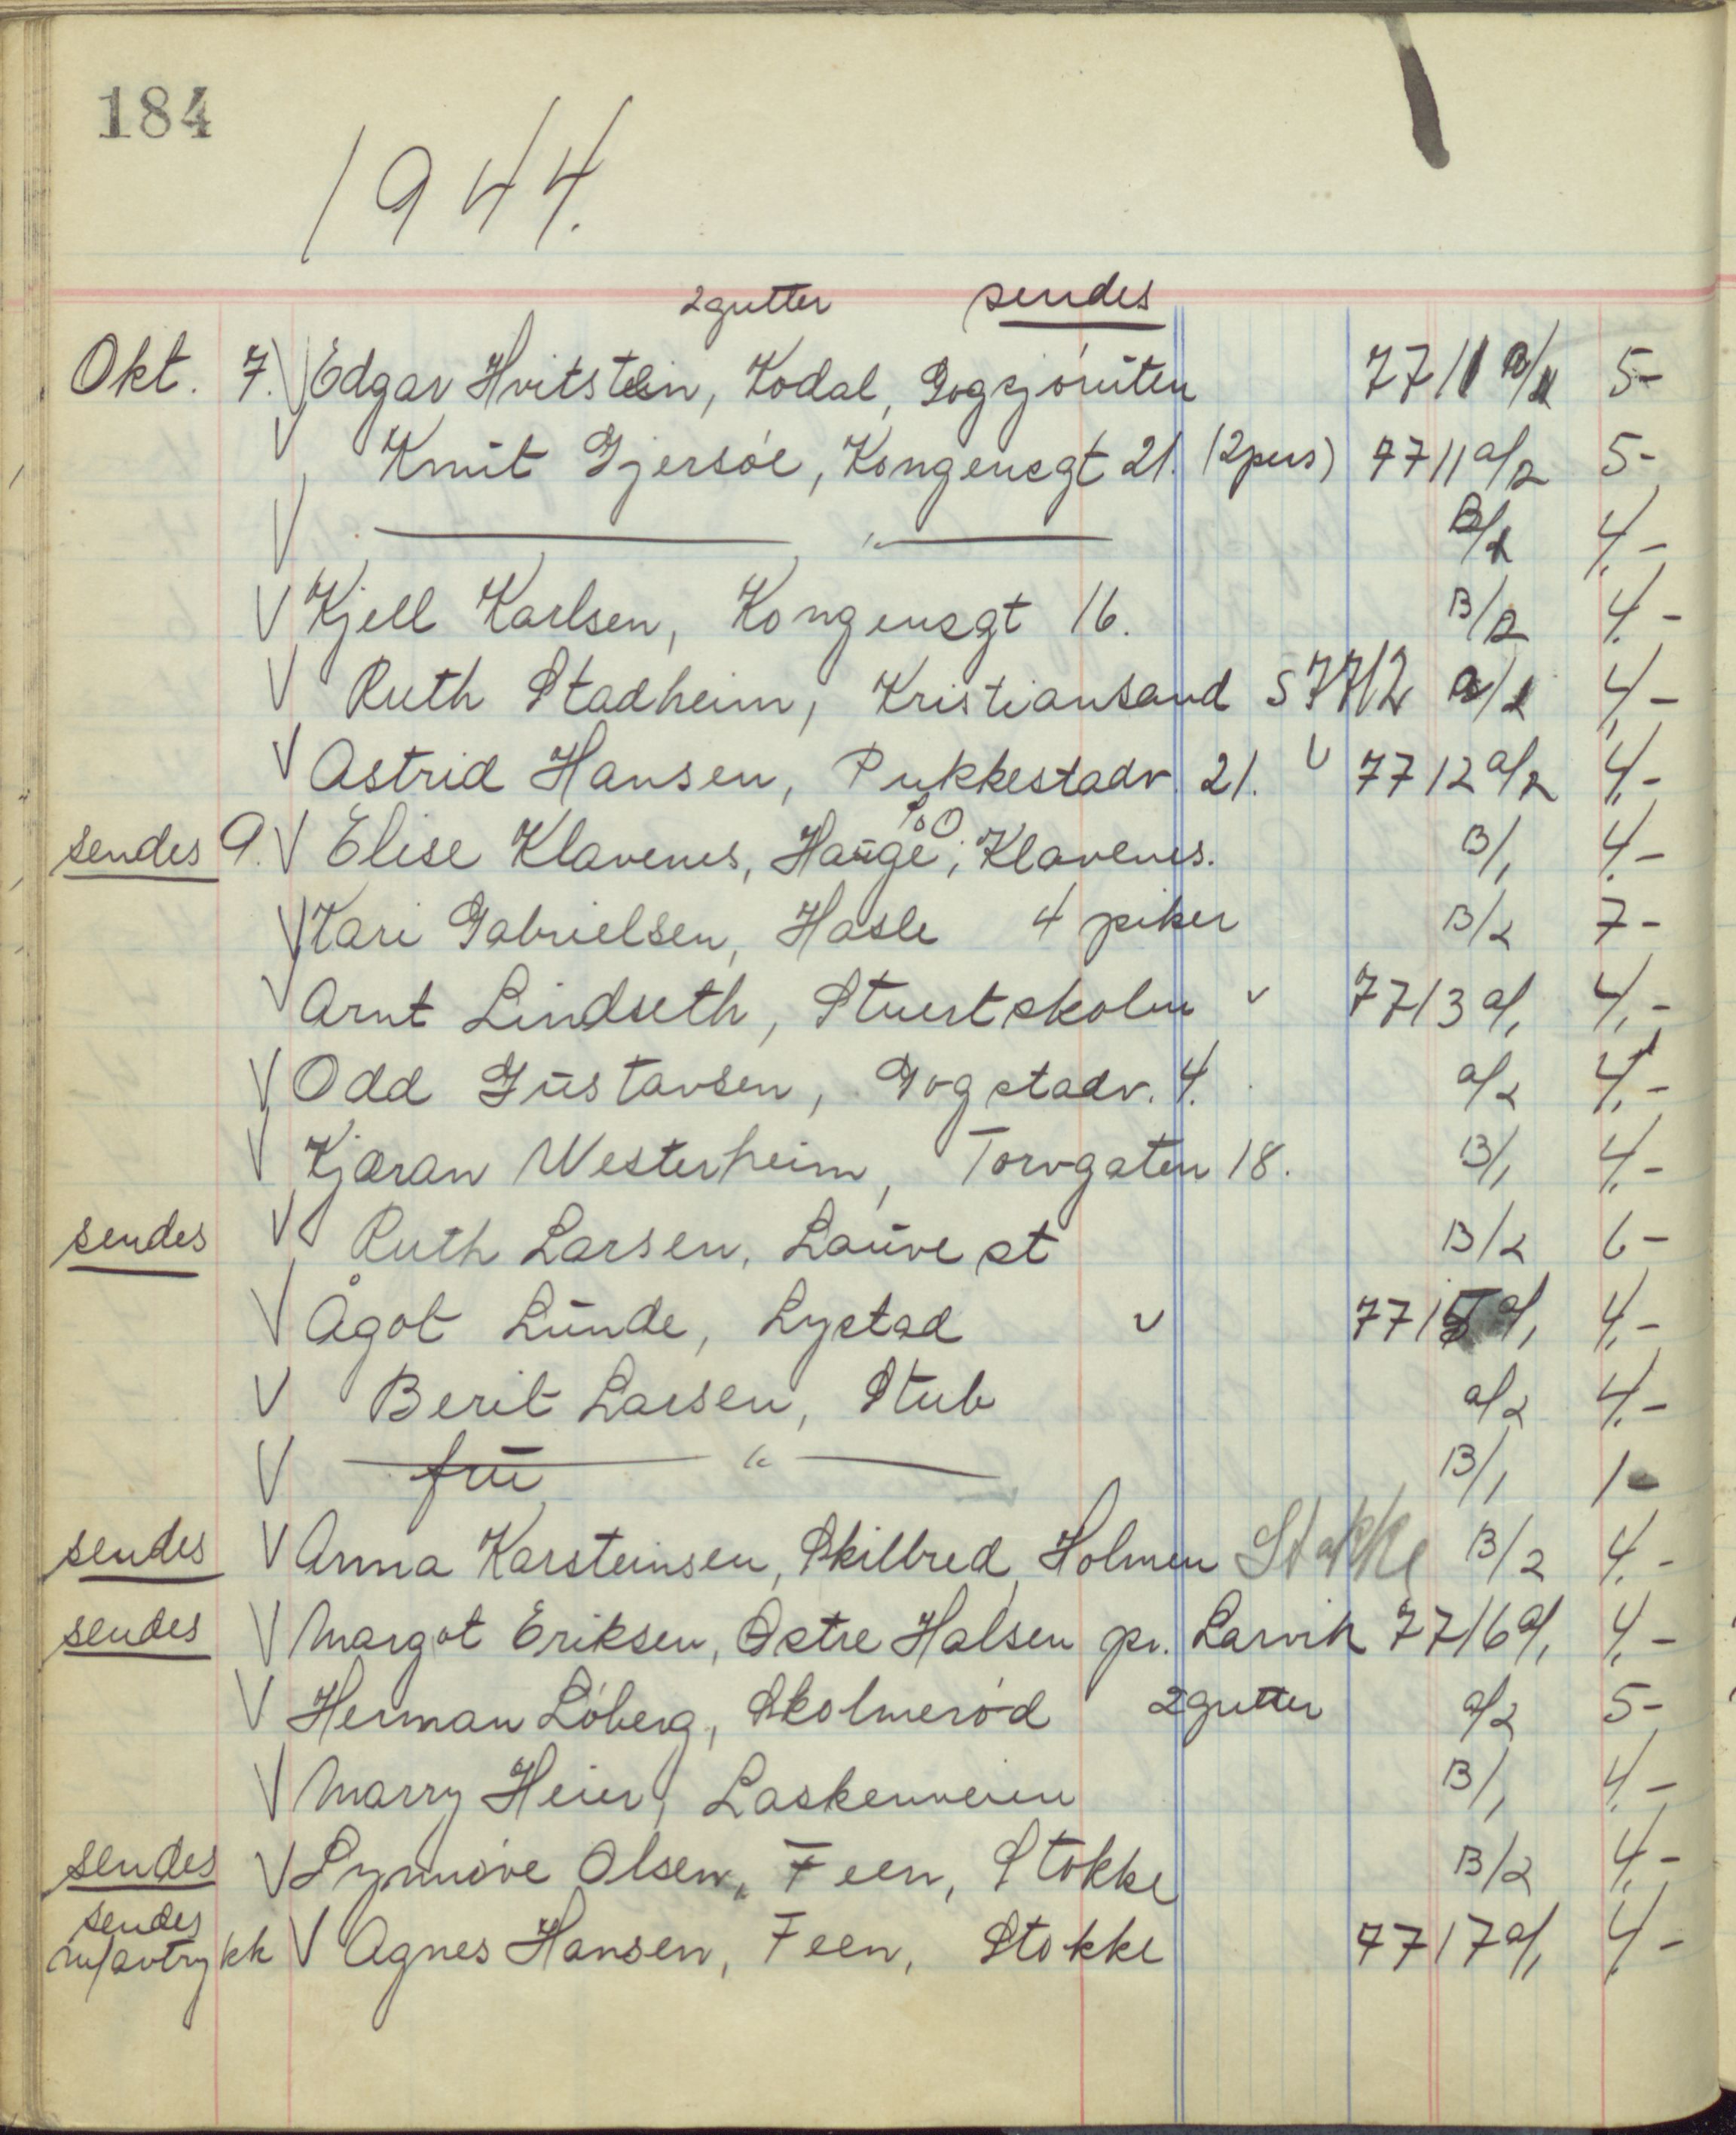 184
1944.
2 gutter sendes
Okt. 7. V Edgar Hvitstein, Kodal, Gogsjøruten 7711 B/1 5-
V Knut Gjersøe, Kongensgt 21. (2 pers) 7711 a/2 5-
V — " — B/1 4,-
V Kjell Karlsen, Kongensgt 16. B/2 4,-
V Ruth Stadheim, Kristiansand S 7712 a/1 4,-
V Astrid Hansen, Pukkestadv. 21. v 7712 a/2 4,-
sendes 9. V Elise Klavenes, Hauge, P.O Klavenes. B/1 4,-
V Kari Gabrielsen, Hasle 4 piker B/2 7-
V Arnt Lindseth, Stuertskolen v 7713 a/1 4,-
V Odd Gustavsen, Gogstadv. 4. a/2 4,-
V Kjæran Westerheim, Torvgaten 18. B/1 4,-
sendes V Ruth Larsen, Lauve st B/2 6-
V Ågot Lunde, Lystad v 7715 a/1 4,-
V Berit Larsen, Stub a/2 4,-
V fru — " — B/1 1-
sendes V Anna Karsteinsen, Skilbred, Holmen Stokke B/2 4,-
sendes V Margot Eriksen, Østre Halsen pr. Larvik 7716 a/1 4,-
V Herman Løberg, Skolmerød 2 gutter a/2 5-
V Marry Heier, Laskenveien B/1 4,-
sendes V Synnøve Olsen, Feen, Stokke B/2 4,-
sendes
m/avtrykk V Agnes Hansen, Feen, Stokke 7717 a/1 4,-